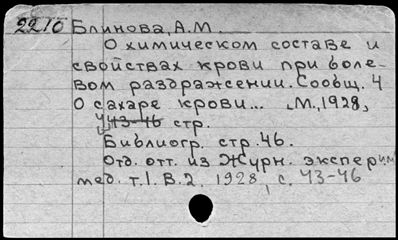 2210 Блинова, А.М.
О химическом составе и
свойствах крови при боле-
вом раздражении. Сообщ. 4
О сахаре крови... М., 1928,
43-46 стр.
Библиогр. стр. 46.
Отд. отт. из Журн. экспер. им.
мед. т.1. В.2. 1928, с. 43-46